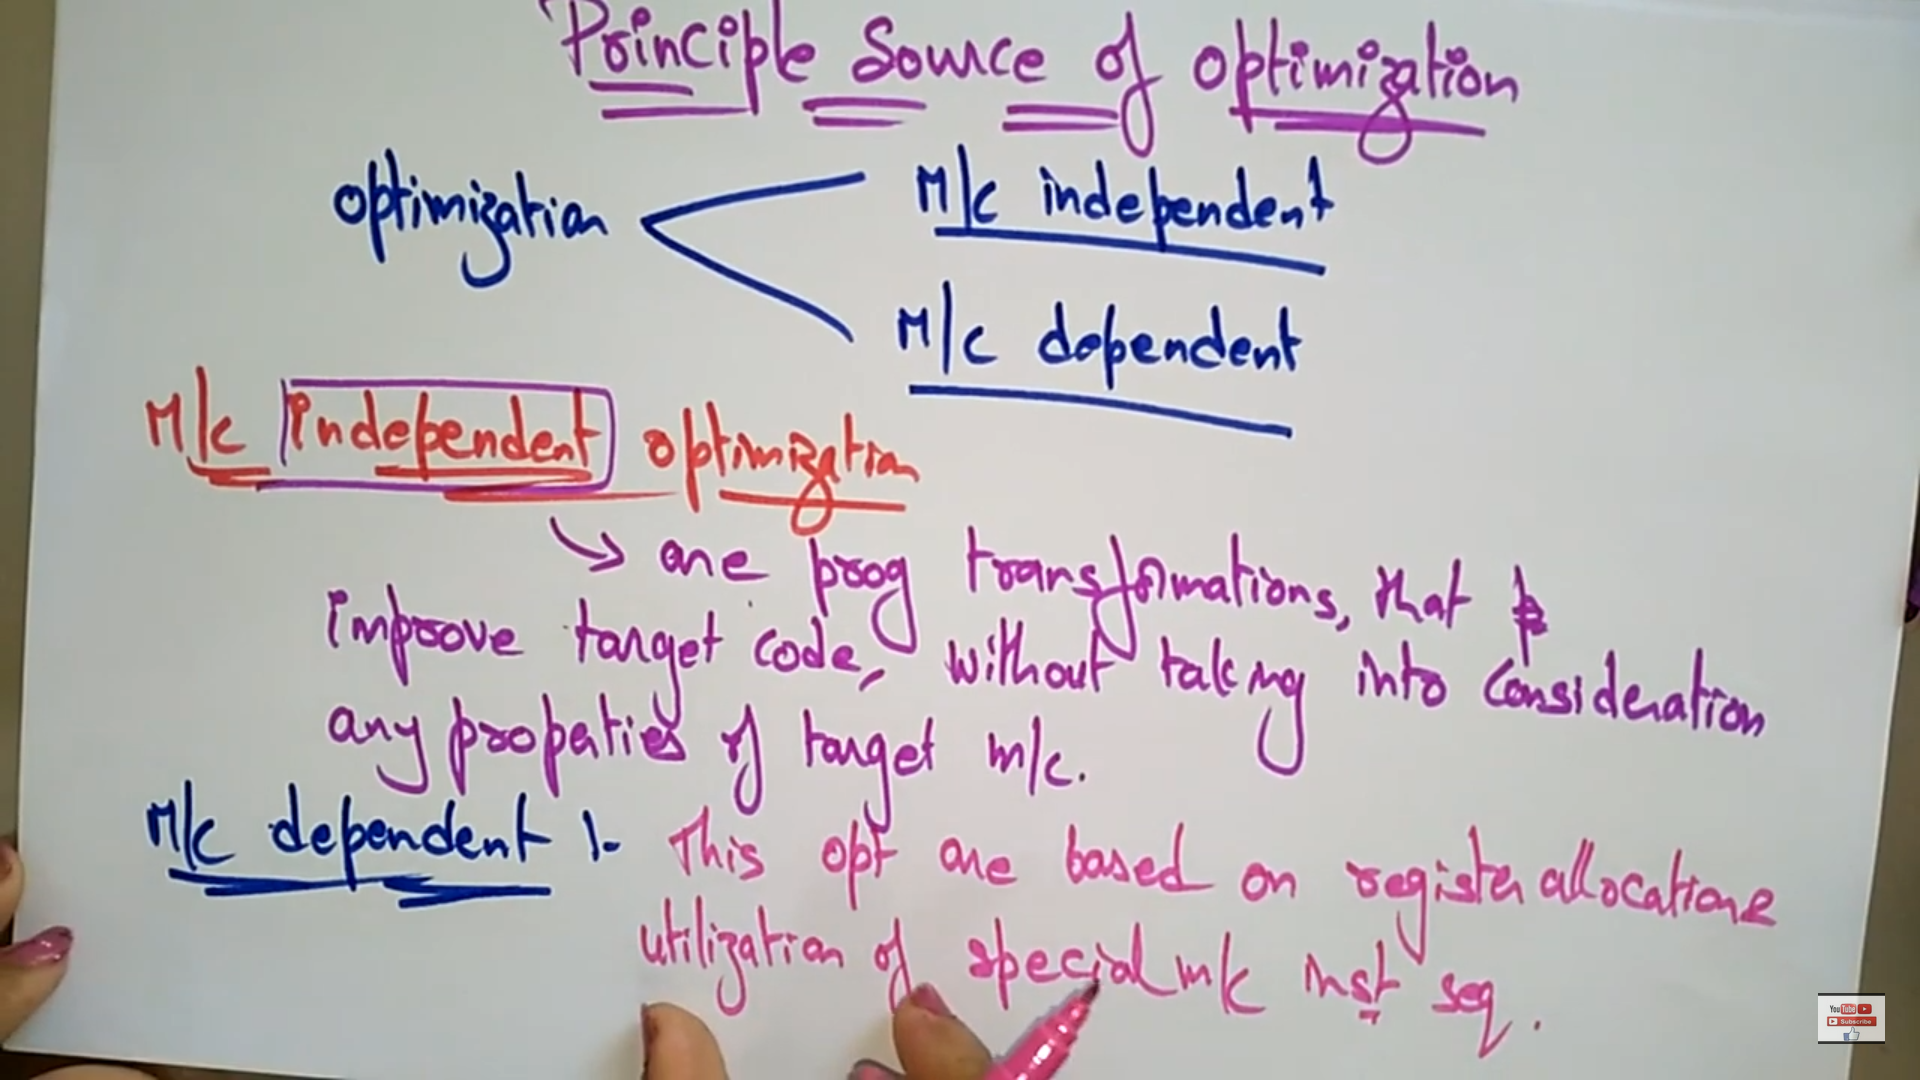 Principle Source of optimization
optimization
M/c independent
M/c dependent
M/c independent optimization
are prog transformations, that
improve target code, without taking into consideration
any properties of target m/c.
M/c dependent :-
This opt are based on register allocation &
utilization of special m/c inst seq.
YouTube
Subscribe